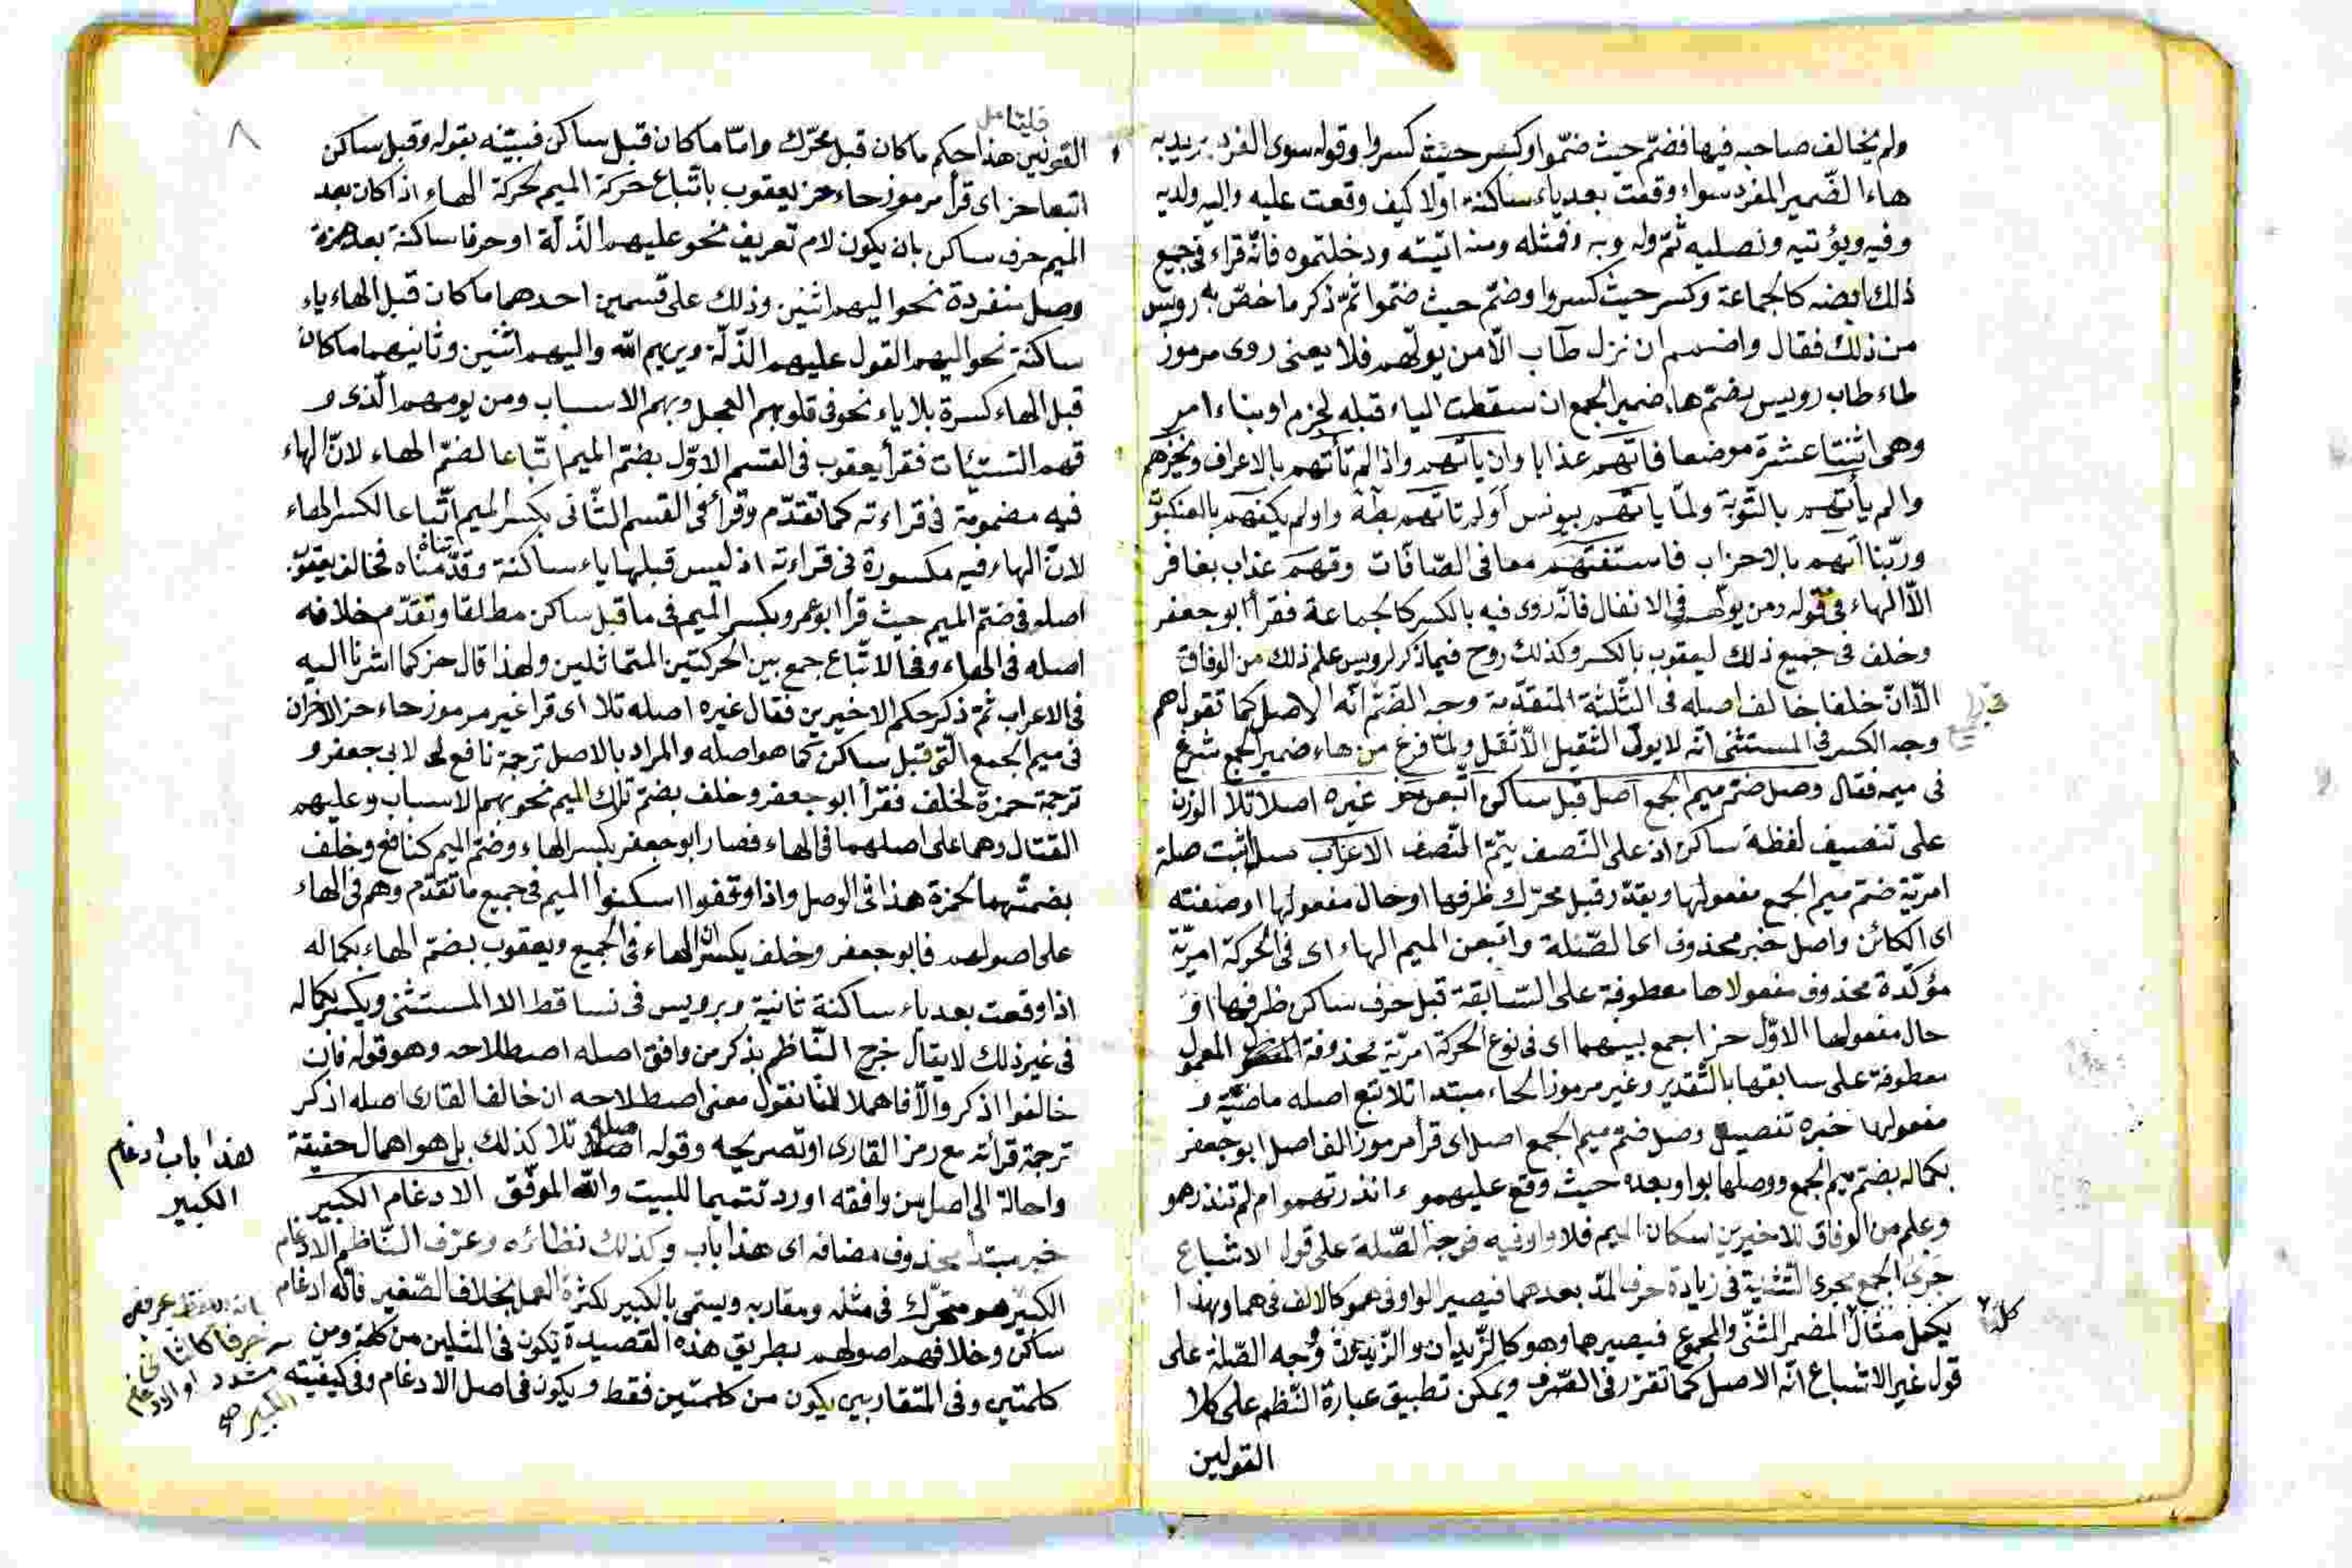 ولم يخالف صاحبه فيها فضمّ حيث ضمّوا وكسر حيث كسروا وقوله سوى الفرد يريد به
هاء الضّمير المفرد سواء وقعت بعد ياء ساكنة اولا كيف وقعت عليه واليه ولديه
وفيه ويؤتيه ونصليه ثمّ وله وبه وفمثله ومنه اتيته ودخلتموه فانّه قراء فى جميع
ذلك كالجماعة وكسر حيث كسروا وضمّ حيث ضمّوا ثمّ ذكر ما خصّ به رويس
من ذلك فقال واضمم ان تزل طاب الّا من يولّهم فلا يعنى روى مرموز
طاء طاب رويس بضمّ هاء ضمير الجمع ان سقطت الياء قبله لجزم او بناء امر
وهى اثنتا عشرة موضعا فاتهم عذابا وان ياتهم واذا لم تأتهم بالاعراف ويخزهم
والم يأتهم بالتّوبة ولمّا ياتهم بيونس اولم تاتهم بطه واولم يكفهم بالعنكبوت
وربّنا اتهم بالاحزاب فاستفتهم معا فى الصّافّات وقهم عذاب بغافر
الّا الهاء فى قوله ومن يولّهم فى الانفال فانّه روى فيه بالكسر كالجماعة فقرأ ابو جعفر
وخلف فى جميع ذلك ليعقوب بالكسر وكذلك روح فيما ذكر لرويس علم ذلك من الوفاق
الّا انّ خلفا خالف اصله فى الثّلثة المتقدّمة وجه الضّمّ انّه الاصل كما تقول هم
وجه الكسر فى المستثنى انّه لا يولّ الثقيل الاثقل ولمّا فرغ من هاء ضمير الجمع شرع
فى ميمه فقال وصل ضمّ ميم الجمع اصل قبل ساكن اتبعن حز غيره اصلا تلا الوزن
على تنصيف لفظة ساكن اذ على النّصف يتمّ المنّصف الاعراب صل اثبت صلة
امريّة ضمّ ميم الجمع مفعولها ويقدّر قبل محرّك ظرفها او حال مفعولها او صفته
اى الكائن واصل خبر محذوف اى الصّلة واتبعن الميم الهاء اى فى الحركة امريّة
مؤكّدة محذوف مفعولاها معطوفة على السّابقة قبل حرف ساكن ظرفها او
حال مفعولها الاوّل حز اجمع بينهما اى فى نوع الحركة امريّة محذوفة المعمول
معطوفة على سابقها بالتّقدير وغير مرموز الحاء مبتدا تلا تبع اصله ماضيّة و
مفعولها خبره تفصيل وصل ضمّ ميم الجمع اصل اى قرأ مرموز الف اصل ابو جعفر
بكماله بضمّ ميم الجمع ووصلها بواو بعده حيث وقع عليهمو ءانذرتهمو ام لم تنذرهمو
وعلم من الوفاق للاخيرين اسكان الميم فلا واو فيه فوجه الصّلة على قول الاشباع
جرى الجمع مجرى التّثنية فى زيادة حرف المدّ بعدهما فيصير الواو فى همو كالالف فى هما وبهذا
يكمل مثال المضمر المثنّى والمجموع فيصيرهما وهو كالزّيدان والزّيدون ووجه الصّلة على
قول غير الاشباع انّه الاصل كما تقرّر فى الصّرف ويمكن تطبيق عبارة النّظم على كلا
القولين
القولين هذا حكم ما كان قبل محرّك وامّا ما كان قبل ساكن فبيّنه بقوله وقبل ساكن
اتبعا حز اى قرأ مرموز حاء حز يعقوب باتّباع حركة الميم لحركة الهاء اذا كان بعد
الميم حرف ساكن بان يكون لام تعريف نحو عليهم الذّلّة او حرفا ساكنة بعد همزة
وصل منفردة نحو اليهم اثنين وذلك على قسمين احدهما ما كان قبل الهاء ياء
ساكنة نحو اليهم القول عليهم الذّلّة ويريهم الله واليهم اثنين وثانيهما ما كان
قبل الهاء كسرة بلا ياء نحو فى قلوبهم العجل وبهم الاسباب ومن يومهم الّذى و
قهم السّيّئات فقرأ يعقوب فى القسم الاوّل بضمّ الميم اتّباعا لضمّ الهاء لانّ الهاء
فيه مضمومة فى قراءته كما تقدّم وقرأ فى القسم الثّانى بكسر الميم اتّباعا لكسر الهاء
لانّ الهاء فيه مكسورة فى قراءته اذ ليس قبلها ياء ساكنة وقدّمناه فخالف يعقوب
اصله فى ضمّ الميم حيث قرأ ابو عمرو بكسر الميم فى ما قبل ساكن مطلقا وتقدّم خلافه
اصله فى الهاء وفى الاتّباع جمع بين الحركتين المتماثلين ولهذا قال حز كما اشرنا اليه
فى الاعراب ثمّ ذكر حكم الاخيرين فقال غيره اصله تلا اى قرا غير مرموز حاء حز الاخران
فى ميم الجمع الّتى قبل ساكن كما هو اصله والمراد بالاصل ترجمة نافع لابى جعفر و
ترجمة حمزة لخلف فقرأ ابو جعفر وخلف بضمّ تلك الميم نحو بهم الاسباب وعليهم
القتال وهما على اصلهما فى الهاء فصار ابو جعفر بكسر الهاء وضمّ الميم كنافع وخلف
بضمّهما كحمزة هذا فى الوصل واذا وقفوا اسكنوا الميم فى جميع ما تقدّم وهم فى الهاء
على اصولهم فابو جعفر وخلف يكسران الهاء فى الجميع ويعقوب بضمّ الهاء بكماله
اذا وقعت بعد ياء ساكنة ثانية وبرويس فى تساقط الا المستثنى ويكسر بكماله
فى غير ذلك لا يقال خرج النّاظم بذكر من وافق اصله اصطلاحه وهو قوله فان
خالفوا اذكر والّا فاهملا لانّا نقول معنى اصطلاحه ان خالف القارى اصله اذكر
ترجمة قرأته مع رمز القارى او تصريحه وقوله اصله تلا كذلك بل هو اهمال حقيقة
واحالة الى اصل من وافقه اورد تتميما للبيت والله الموفّق الادغام الكبير
خبر مبتدأ محذوف مضافه اى هذا باب وكذلك نظائره وعرّف النّاظم الادغام
الكبير هو متحرّك فى مثله ومقاربه ويسمّى بالكبير لكثرة العمل بخلاف الصّغير فانّه ادغام
ساكن وخلافهم اصولهم بطريق هذه القصيدة يكون فى المثلين من كلمة ومن
كلمتين وفى المتقاربين يكون من كلمتين فقط ويكون فى اصل الادغام وفى كيفيّته
هذا باب ادغام
الكبير